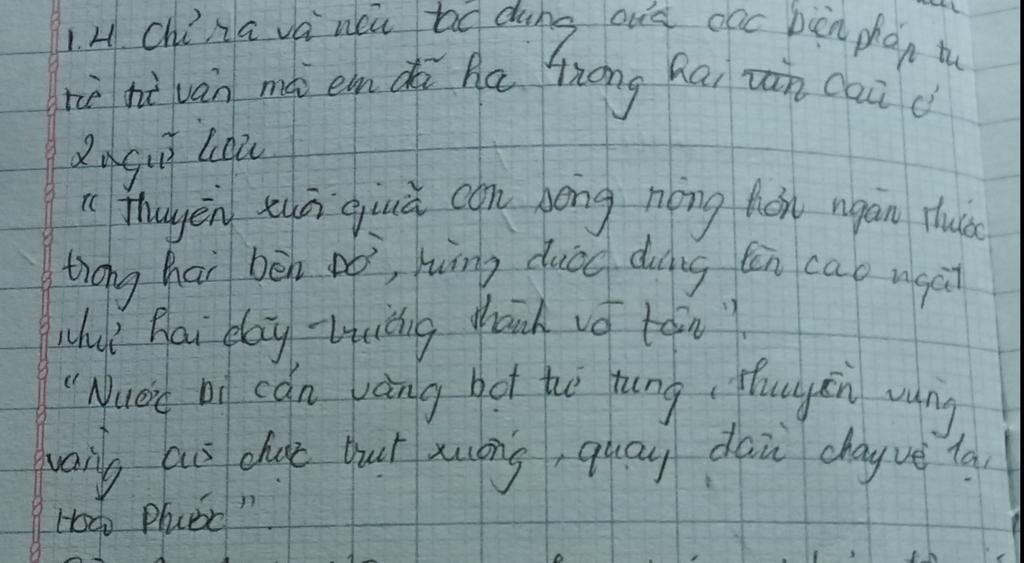 1.4. Chỉ ra và nêu tác dụng của các biện pháp tu
từ từ vản mà em đã ha trong hai văn câu ở
2 ngữ liệu
"Thuyền xuôi giữa con sông rông hơn ngàn thước
trong hai bên bờ, rừng đước dựng lên cao ngất
như hai dãy trường thành vô tận".
"Nước bị cản văng bọt tứ tung, thuyền vùng
vằng cứ chực trụt xuống, quay đầu chạy về lại
Hoà Phước".